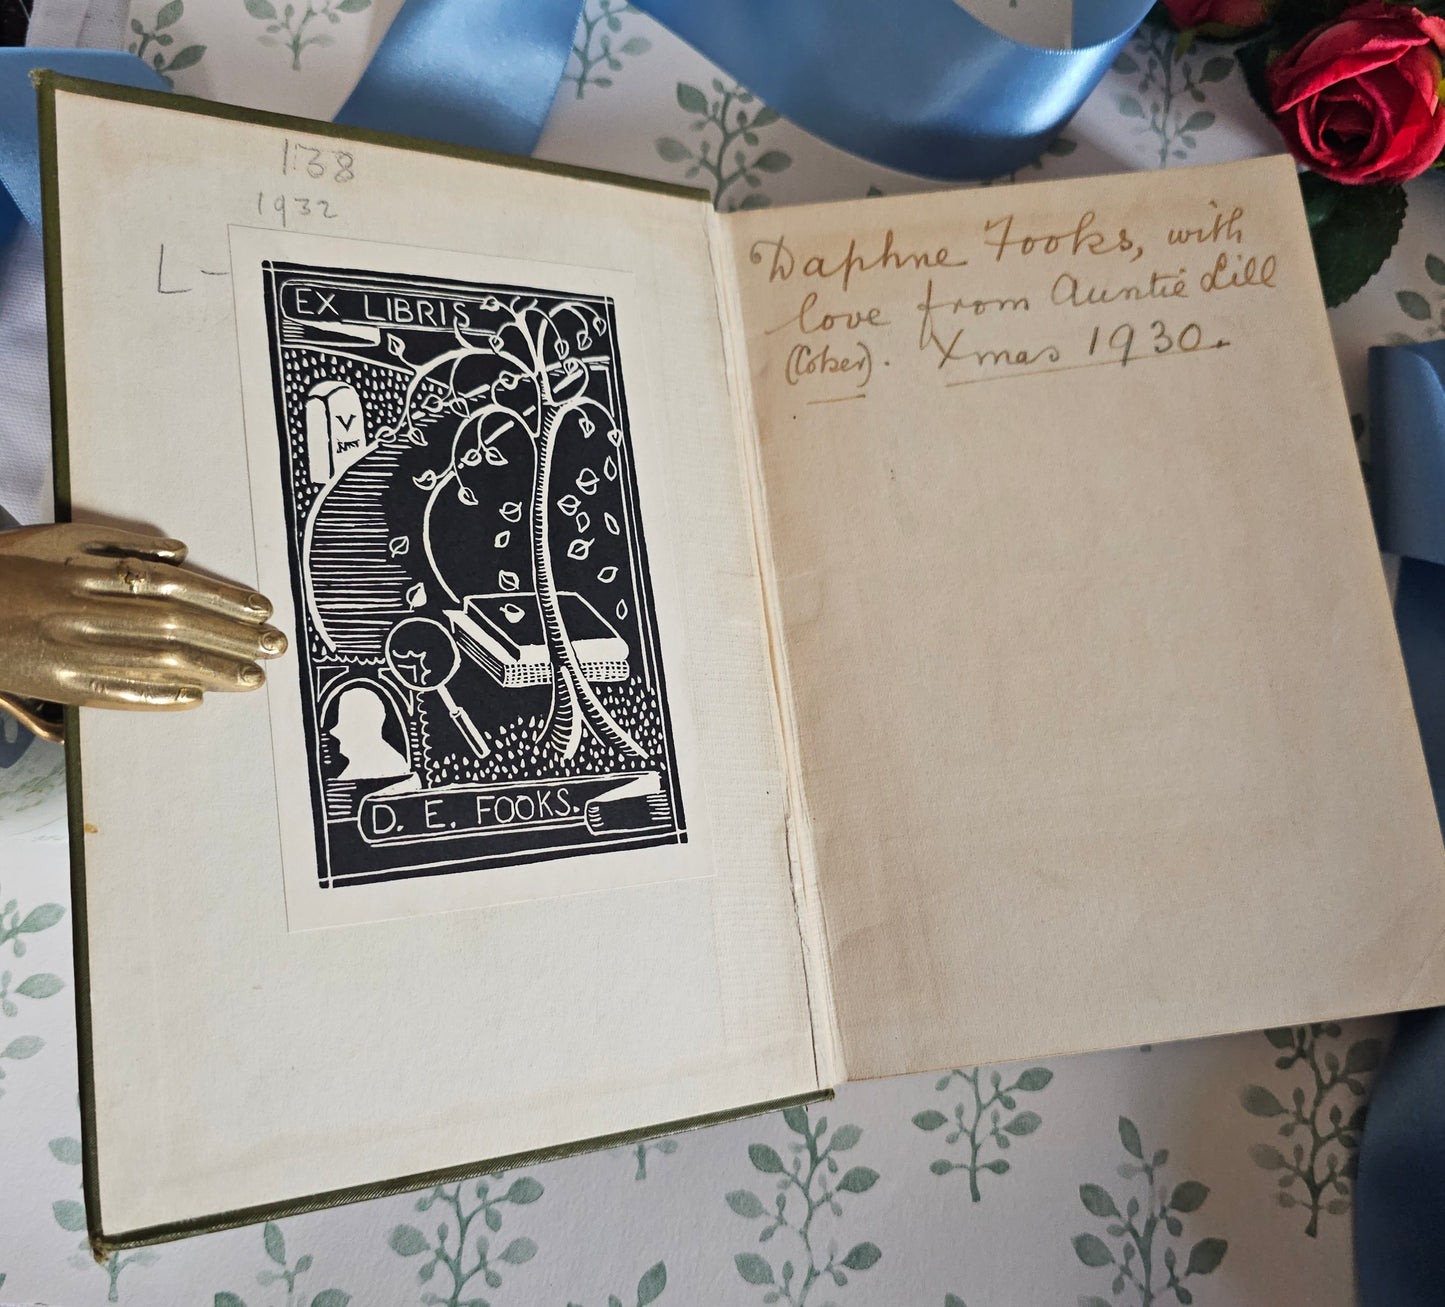 138
1932
L-
EX LIBRIS
V
D. E. FOOKS.
Daphne Fooks, with
love from Auntie Lill
(Coker). Xmas 1930.